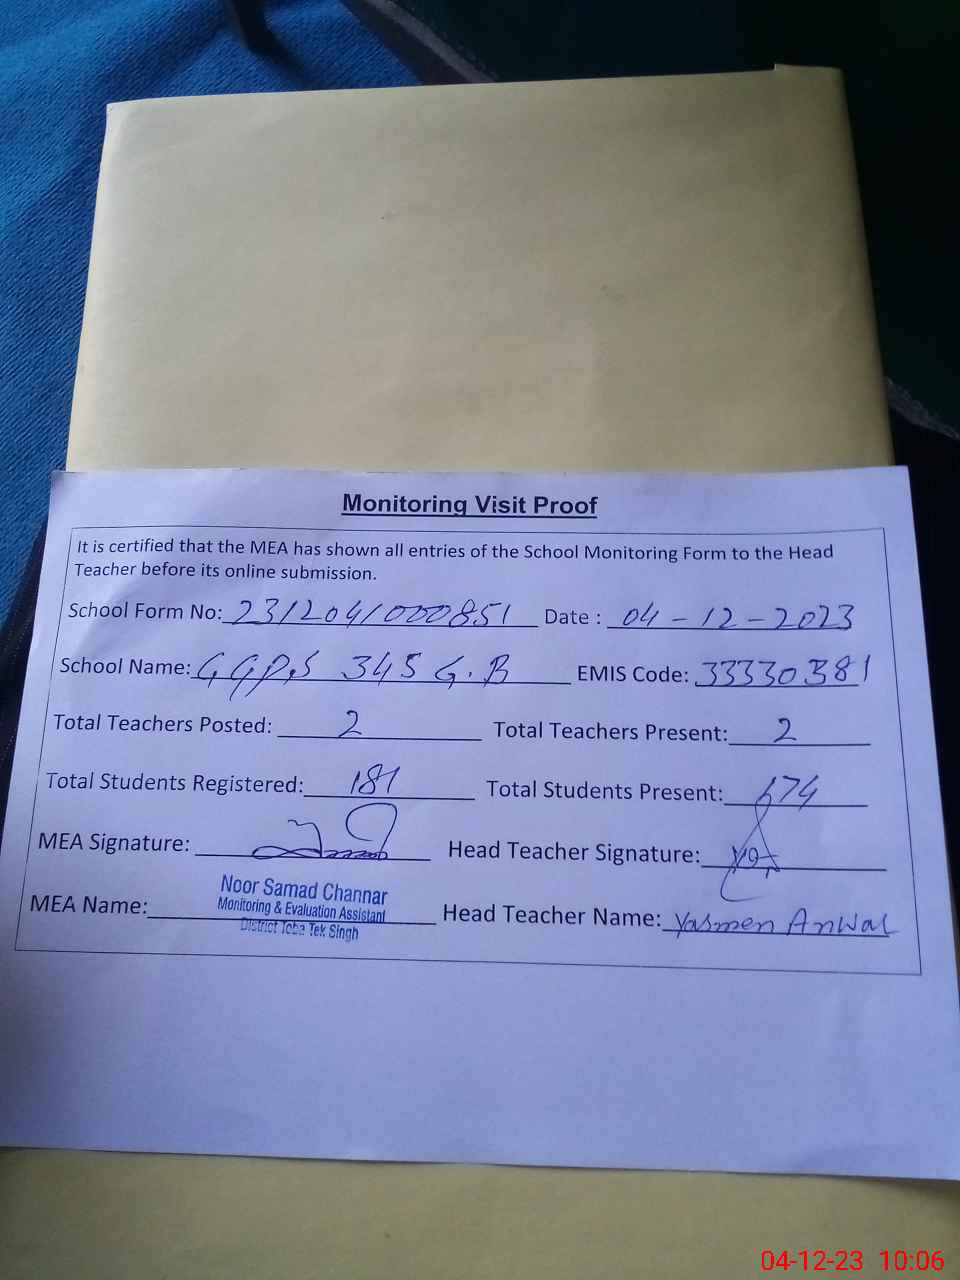 Monitoring Visit Proof
It is certified that the MEA has shown all entries of the School Monitoring Form to the Head
Teacher before its online submission.
School Form No: 2312041000851 Date : 04-12-2023
School Name: GGPS 345 G.B EMIS Code: 33330381
Total Teachers Posted: 2 Total Teachers Present: 2
Total Students Registered: 181 Total Students Present: 174
MEA Signature: Head Teacher Signature:
MEA Name: Noor Samad Channar
Monitoring & Evaluation Assistant
District Toba Tek Singh
Head Teacher Name: Yasmen Anwar
04-12-23 10:06